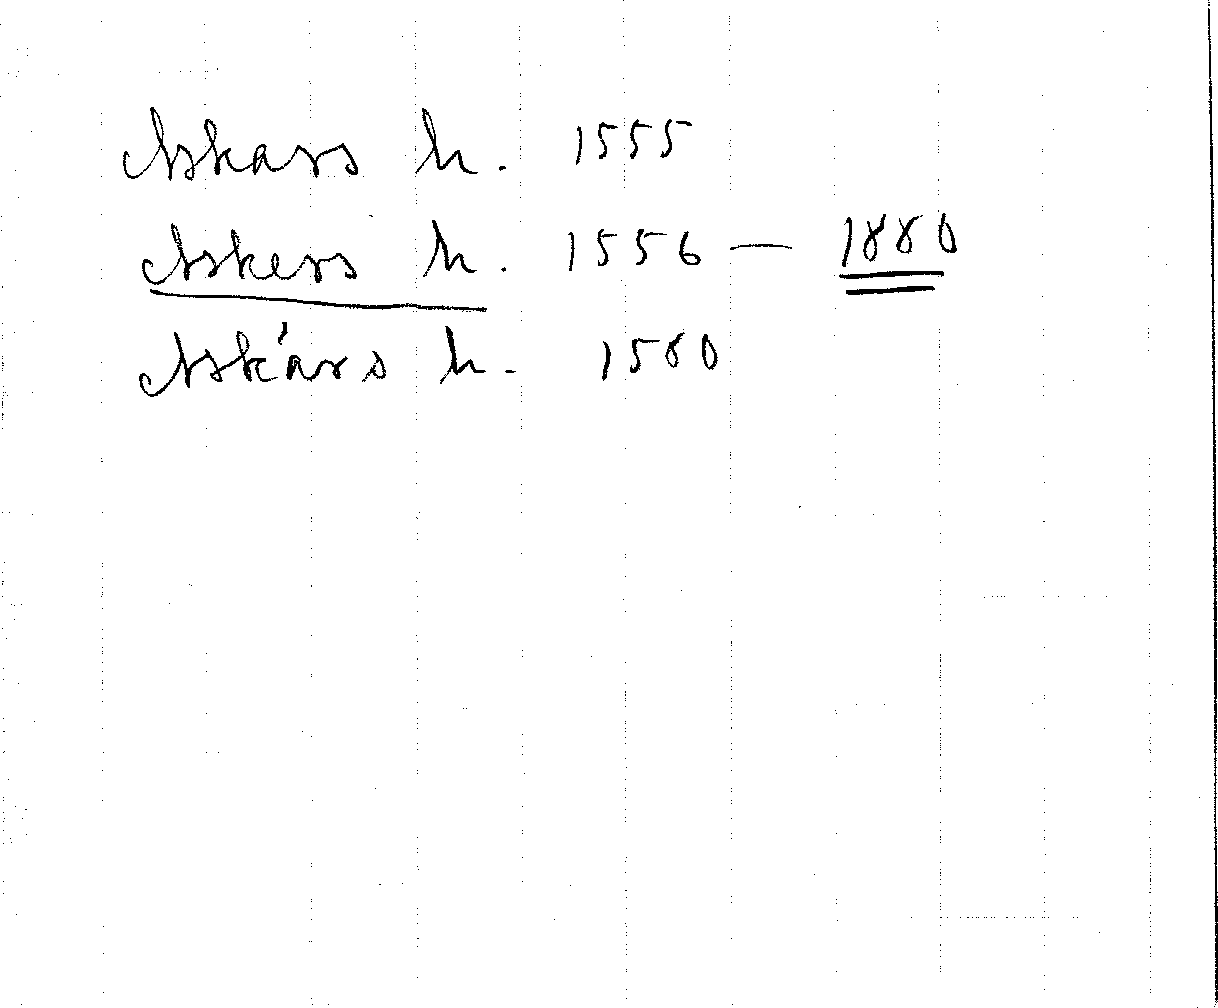 Askars h. 1555
Askers h. 1556 — 1880
Askárs h. 1580